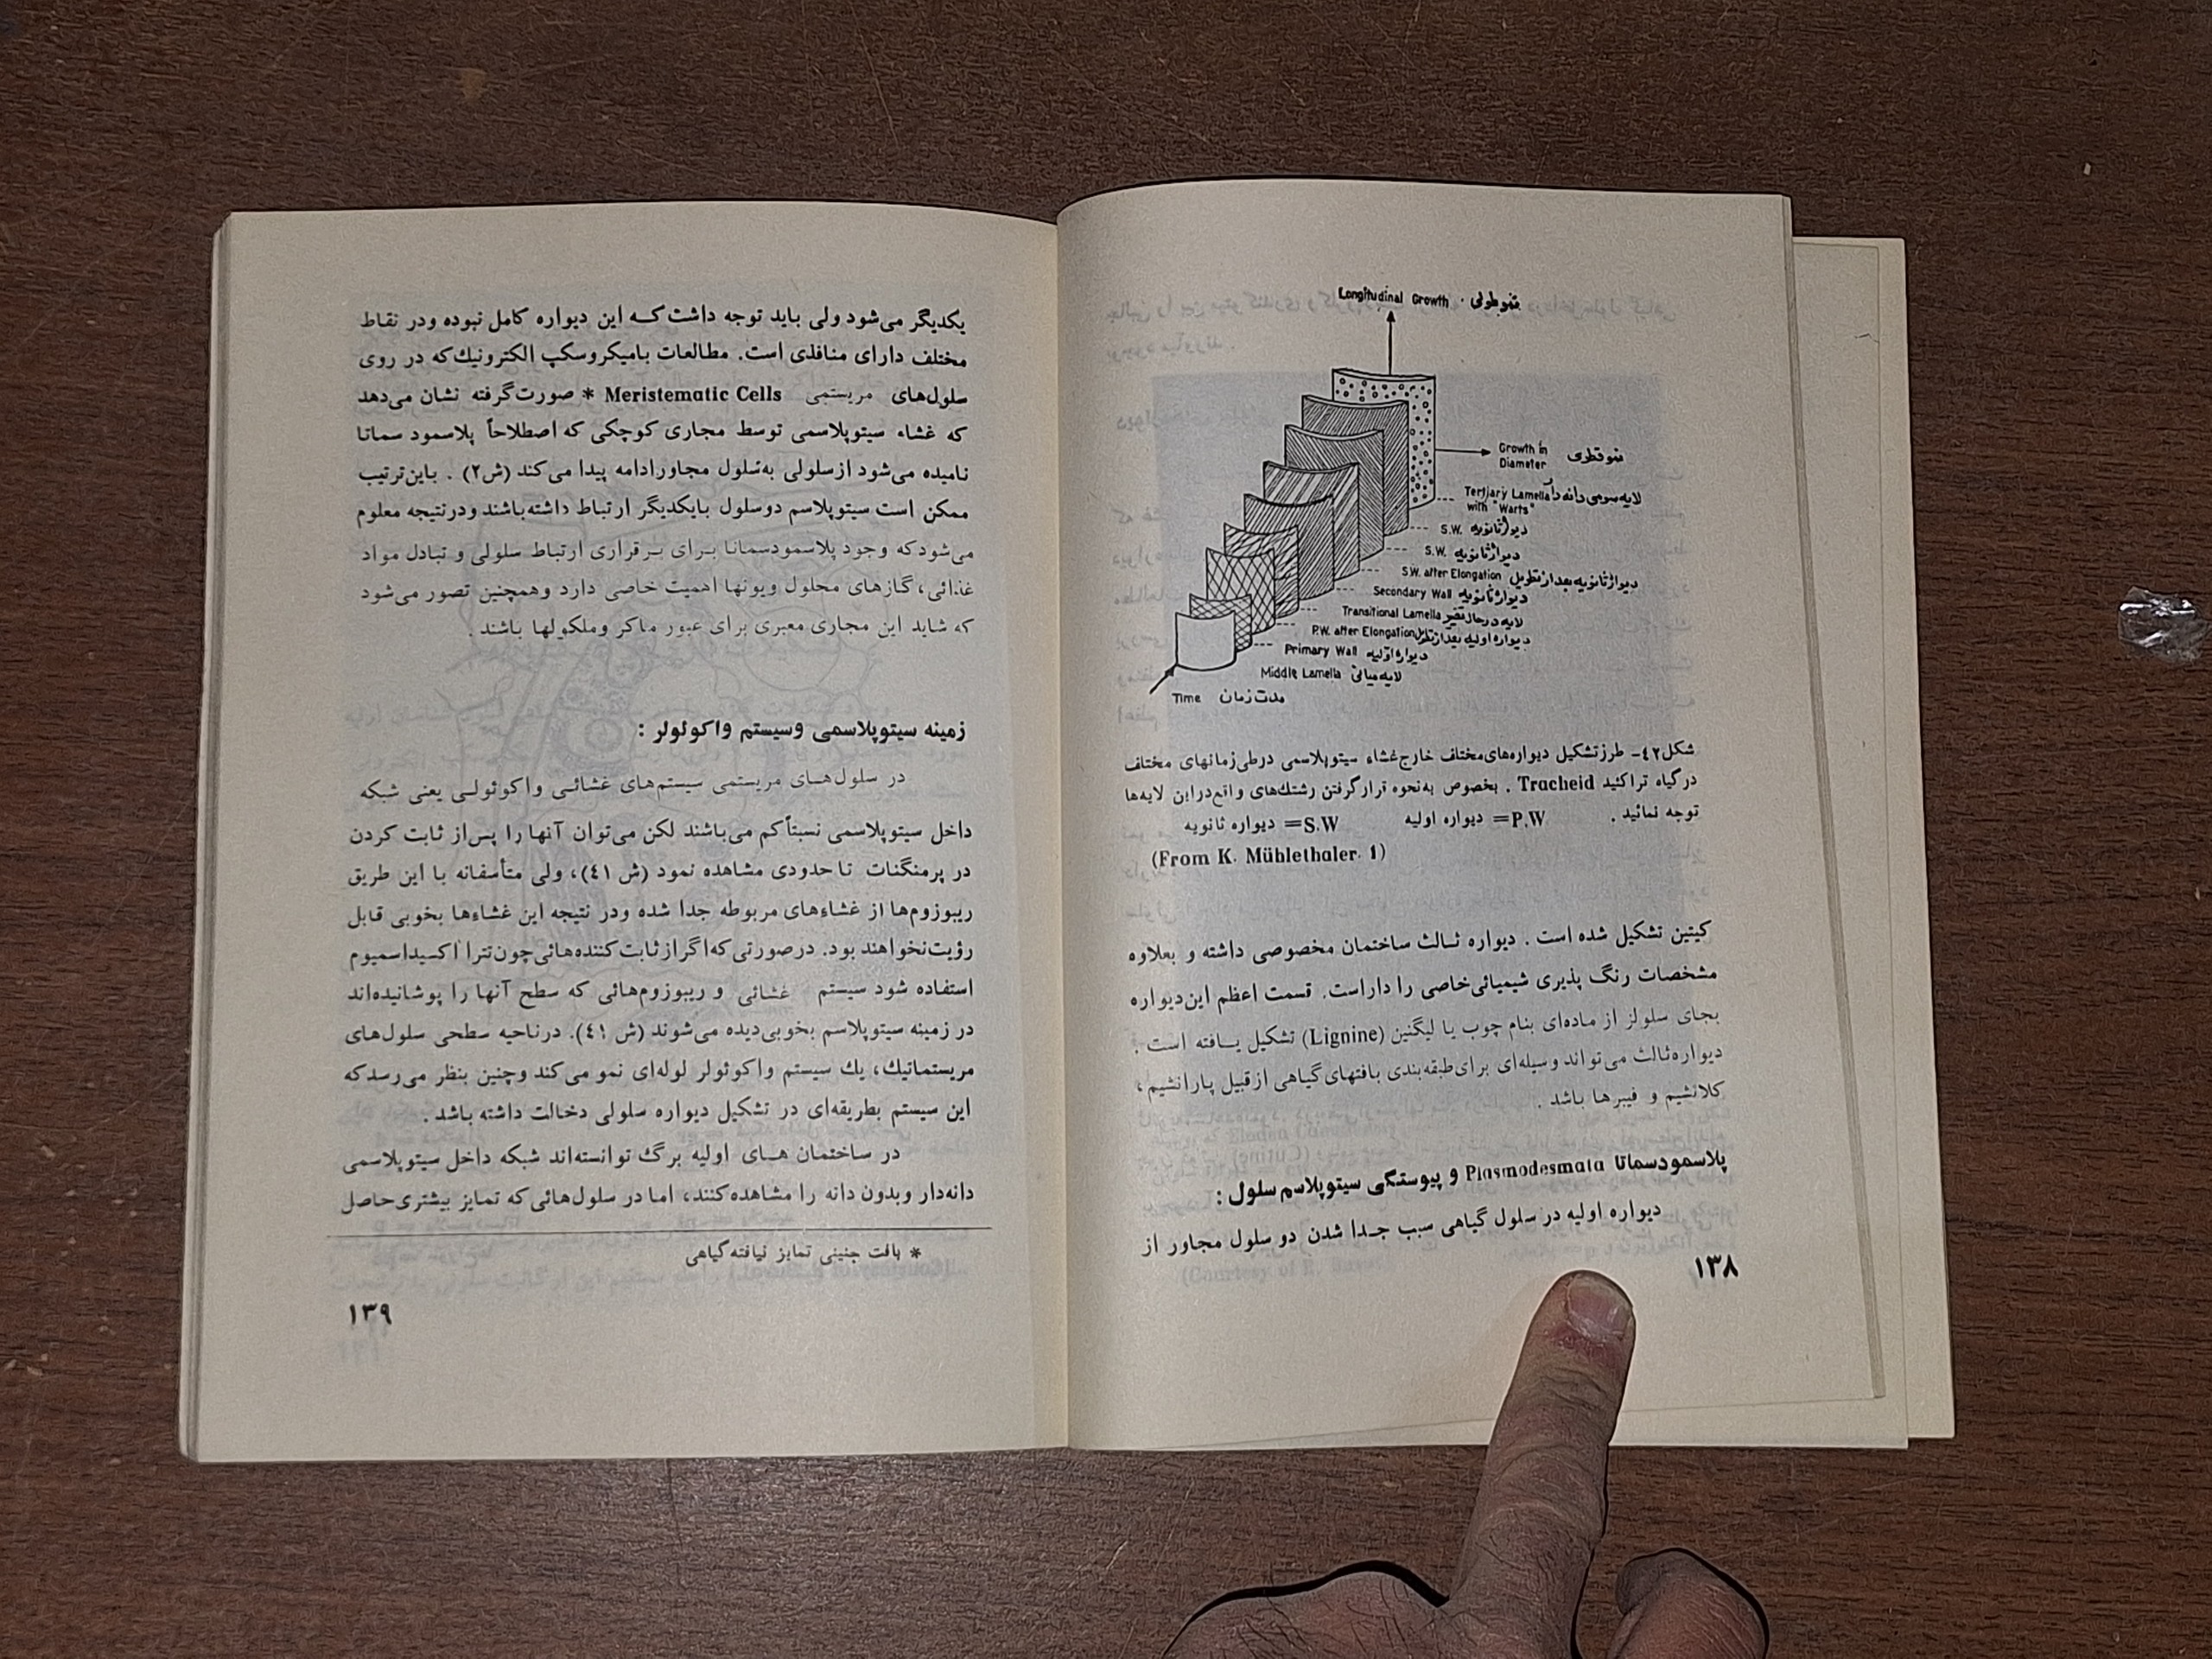 Longitudinal Growth . نمو طولی
Growth in Diameter نمو قطری
Tertiary Lamella with "Warts" لایه سومی دانه دار
S.W. دیواره ثانویه
S.W. دیواره ثانویه
S.W. after Elongation دیواره ثانویه بعد از تطویل
Secondary Wall دیواره ثانویه
Transitional Lamella لایه در حال تغییر
P.W. after Elongation دیواره اولیه بعد از تطویل
Primary Wall دیواره اولیه
Middle Lamella لایه میانی
Time مدت زمان
شکل ٤٢- طرز تشکیل دیواره‌های مختلف خارج غشاء سیتوپلاسمی درطی زمانهای مختلف
در گیاه تراکئید Tracheid . بخصوص به‌نحوه قرار گرفتن رشتك‌های واقع در این لایه‌ها
توجه نمائید . P.W= دیواره اولیه S.W= دیواره ثانویه
(From K. Mühlethaler. 1)
کیتین تشکیل شده است . دیواره ثالث ساختمان مخصوصی داشته و بعلاوه
مشخصات رنگ پذیری شیمیائی خاصی را داراست. قسمت اعظم این دیواره
بجای سلولز از ماده‌ای بنام چوب یا لیگنین (Lignine) تشکیل یافته است .
دیواره ثالث می‌تواند وسیله‌ای برای طبقه‌بندی بافتهای گیاهی ازقبیل پارانشیم،
کلانشیم و فیبرها باشد .
پلاسمودسماتا Plasmodesmata و پیوستگی سیتوپلاسم سلول :
دیواره اولیه در سلول گیاهی سبب جدا شدن دو سلول مجاور از
١٣٨
یکدیگر می‌شود ولی باید توجه داشت که این دیواره کامل نبوده ودر نقاط
مختلف دارای منافذی است. مطالعات بامیکروسکپ الکترونیك که در روی
سلول‌های مریستمی Meristematic Cells * صورت گرفته نشان می‌دهد
که غشاء سیتوپلاسمی توسط مجاری کوچکی که اصطلاحاً پلاسمود سماتا
نامیده می‌شود از سلولی به‌سلول مجاور ادامه پیدا می‌کند (ش٢) . باین‌ترتیب
ممکن است سیتوپلاسم دوسلول بایکدیگر ارتباط داشته‌باشند ودرنتیجه معلوم
می‌شود که وجود پلاسمودسماتا برای برقراری ارتباط سلولی و تبادل مواد
غذائی، گازهای محلول ویونها اهمیت خاصی دارد وهمچنین تصور می‌شود
که شاید این مجاری معبری برای عبور ماکر وملکولها باشند .
زمینه سیتوپلاسمی وسیستم واکوئولر :
در سلول‌های مریستمی سیستم‌های غشائی واکوئولی یعنی شبکه
داخل سیتوپلاسمی نسبتاً کم می‌باشند لکن می‌توان آنها را پس‌از ثابت کردن
در پرمنگنات تا حدودی مشاهده نمود (ش ٤١)، ولی متأسفانه با این طریق
ریبوزوم‌ها از غشاءهای مربوطه جدا شده ودر نتیجه این غشاءها بخوبی قابل
رؤیت نخواهند بود. درصورتی که اگر از ثابت کننده‌هائی چون تترا اکسیداسمیوم
استفاده شود سیستم غشائی و ریبوزوم‌هائی که سطح آنها را پوشانیده‌اند
در زمینه سیتوپلاسم بخوبی دیده می‌شوند (ش ٤١). درناحیه سطحی سلول‌های
مریستماتیك، یك سیستم واکوئولر لوله‌ای نمو می‌کند وچنین بنظر می‌رسد که
این سیستم بطریقه‌ای در تشکیل دیواره سلولی دخالت داشته باشد .
در ساختمان های اولیه برگ توانسته‌اند شبکه داخل سیتوپلاسمی
دانه‌دار وبدون دانه را مشاهده کنند، اما در سلول‌هائی که تمایز بیشتری حاصل
* بافت جنینی تمایز نیافته گیاهی
١٣٩